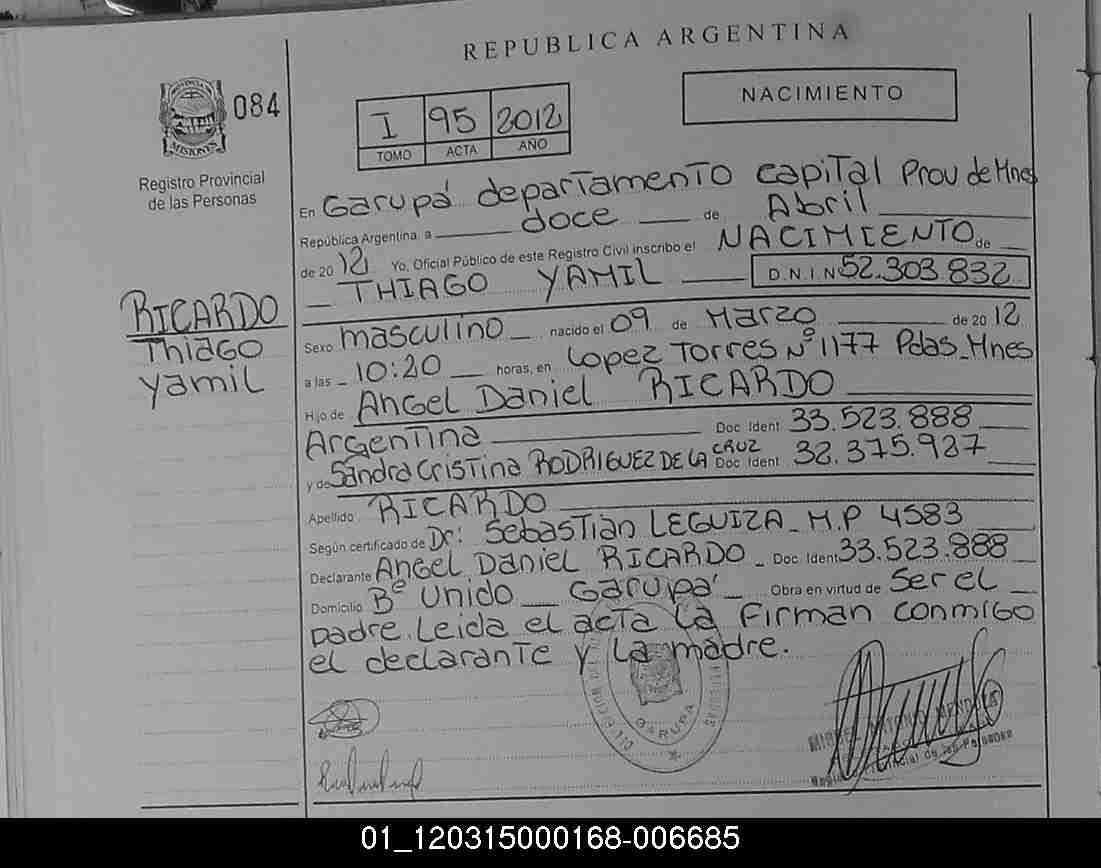 REPUBLICA ARGENTINA
PROVINCIA
MISIONES
084
Registro Provincial
de las Personas
I 95 2012
TOMO ACTA AÑO
NACIMIENTO
En Garupá departamento capital Prov de Mnes
República Argentina, a doce de Abril
de 2012 Yo, Oficial Público de este Registro Civil inscribo el NACIMIENTO de
THIAGO YAMIL D.N.I.Nº 52.303.832
RICARDO
Thiago
Yamil
Sexo masculino nacido el 09 de Marzo de 2012
a las 10:20 horas, en Lopez Torres Nº 1177 Pdas_Mnes
Hijo de Angel Daniel RICARDO
Argentina Doc Ident 33.523.888
y de Sandra Cristina RODRIGUEZ DE LA CRUZ Doc Ident 32.375.927
Apellido RICARDO
Según certificado de Dr: Sebastian LEGUIZA_ M.P 4583
Declarante Angel Daniel RICARDO _ Doc. Ident 33.523.888
Domicilio Bº Unido _ Garupá _ Obra en virtud de Ser el
padre. Leida el acta la firman conmigo
el declarante y la madre.
GARUPA
01_120315000168-006685